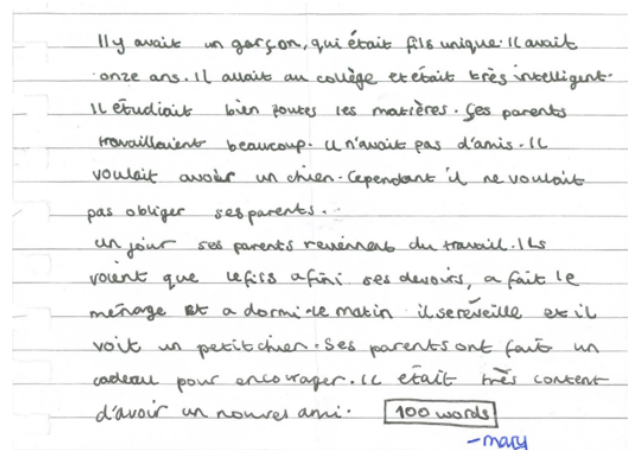 Il y avait un garçon, qui était fils unique. Il avait
onze ans. Il allait au collège et était très intelligent.
Il étudiait bien toutes les matières. Ses parents
travaillaient beaucoup. Il n'avait pas d'amis. Il
voulait avoir un chien. Cependant il ne voulait
pas obliger ses parents.
Un jour ses parents reviennent du travail. Ils
voient que le fils a fini ses devoirs, a fait le
ménage et a dormi. Le matin il se réveille et il
voit un petit chien. Ses parents ont fait un
cadeau pour encourager. Il était très content
d'avoir un nouvel ami. 100 words
- mary